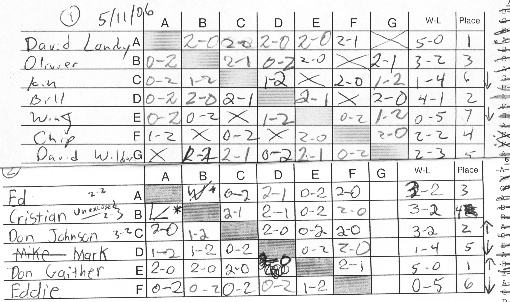 ① 5/11/06 A B C D E F G W-L Place
David Landy A 2-0 2-0 2-0 2-0 2-1 X 5-0 1
Oliver B 0-2 2-1 0-2 2-0 X 2-1 3-2 3
C 0-2 1-2 1-2 X 2-0 1-2 1-4 6 ↓
Bill D 0-2 2-0 2-1 2-1 X 2-0 4-1 2
Wing E 0-2 0-2 X 1-2 0-2 1-2 0-5 7 ↓
Chip F 1-2 X 0-2 X 2-0 2-0 2-2 4
David G X 2-1 0-2 2-1 0-2 2-3 5
2 A B C D E F W-L Place
Ed 2-2 A W* 0-2 2-1 0-2 2-0 3-2 3
Cristian Unexcused 2-3 B L* 2-1 2-1 0-2 2-0 3-2 4
Don Johnson 3-2 C 2-0 1-2 2-0 0-2 2-0 3-2 2 ↑
Mike Mark D 1-2 1-2 0-2 0-2 2-0 1-4 5 ↓
Don Gaither E 2-0 2-0 2-0 2-1 5-0 1 ↑
Eddie F 0-2 0-2 0-2 0-2 1-2 0-5 6 ↓